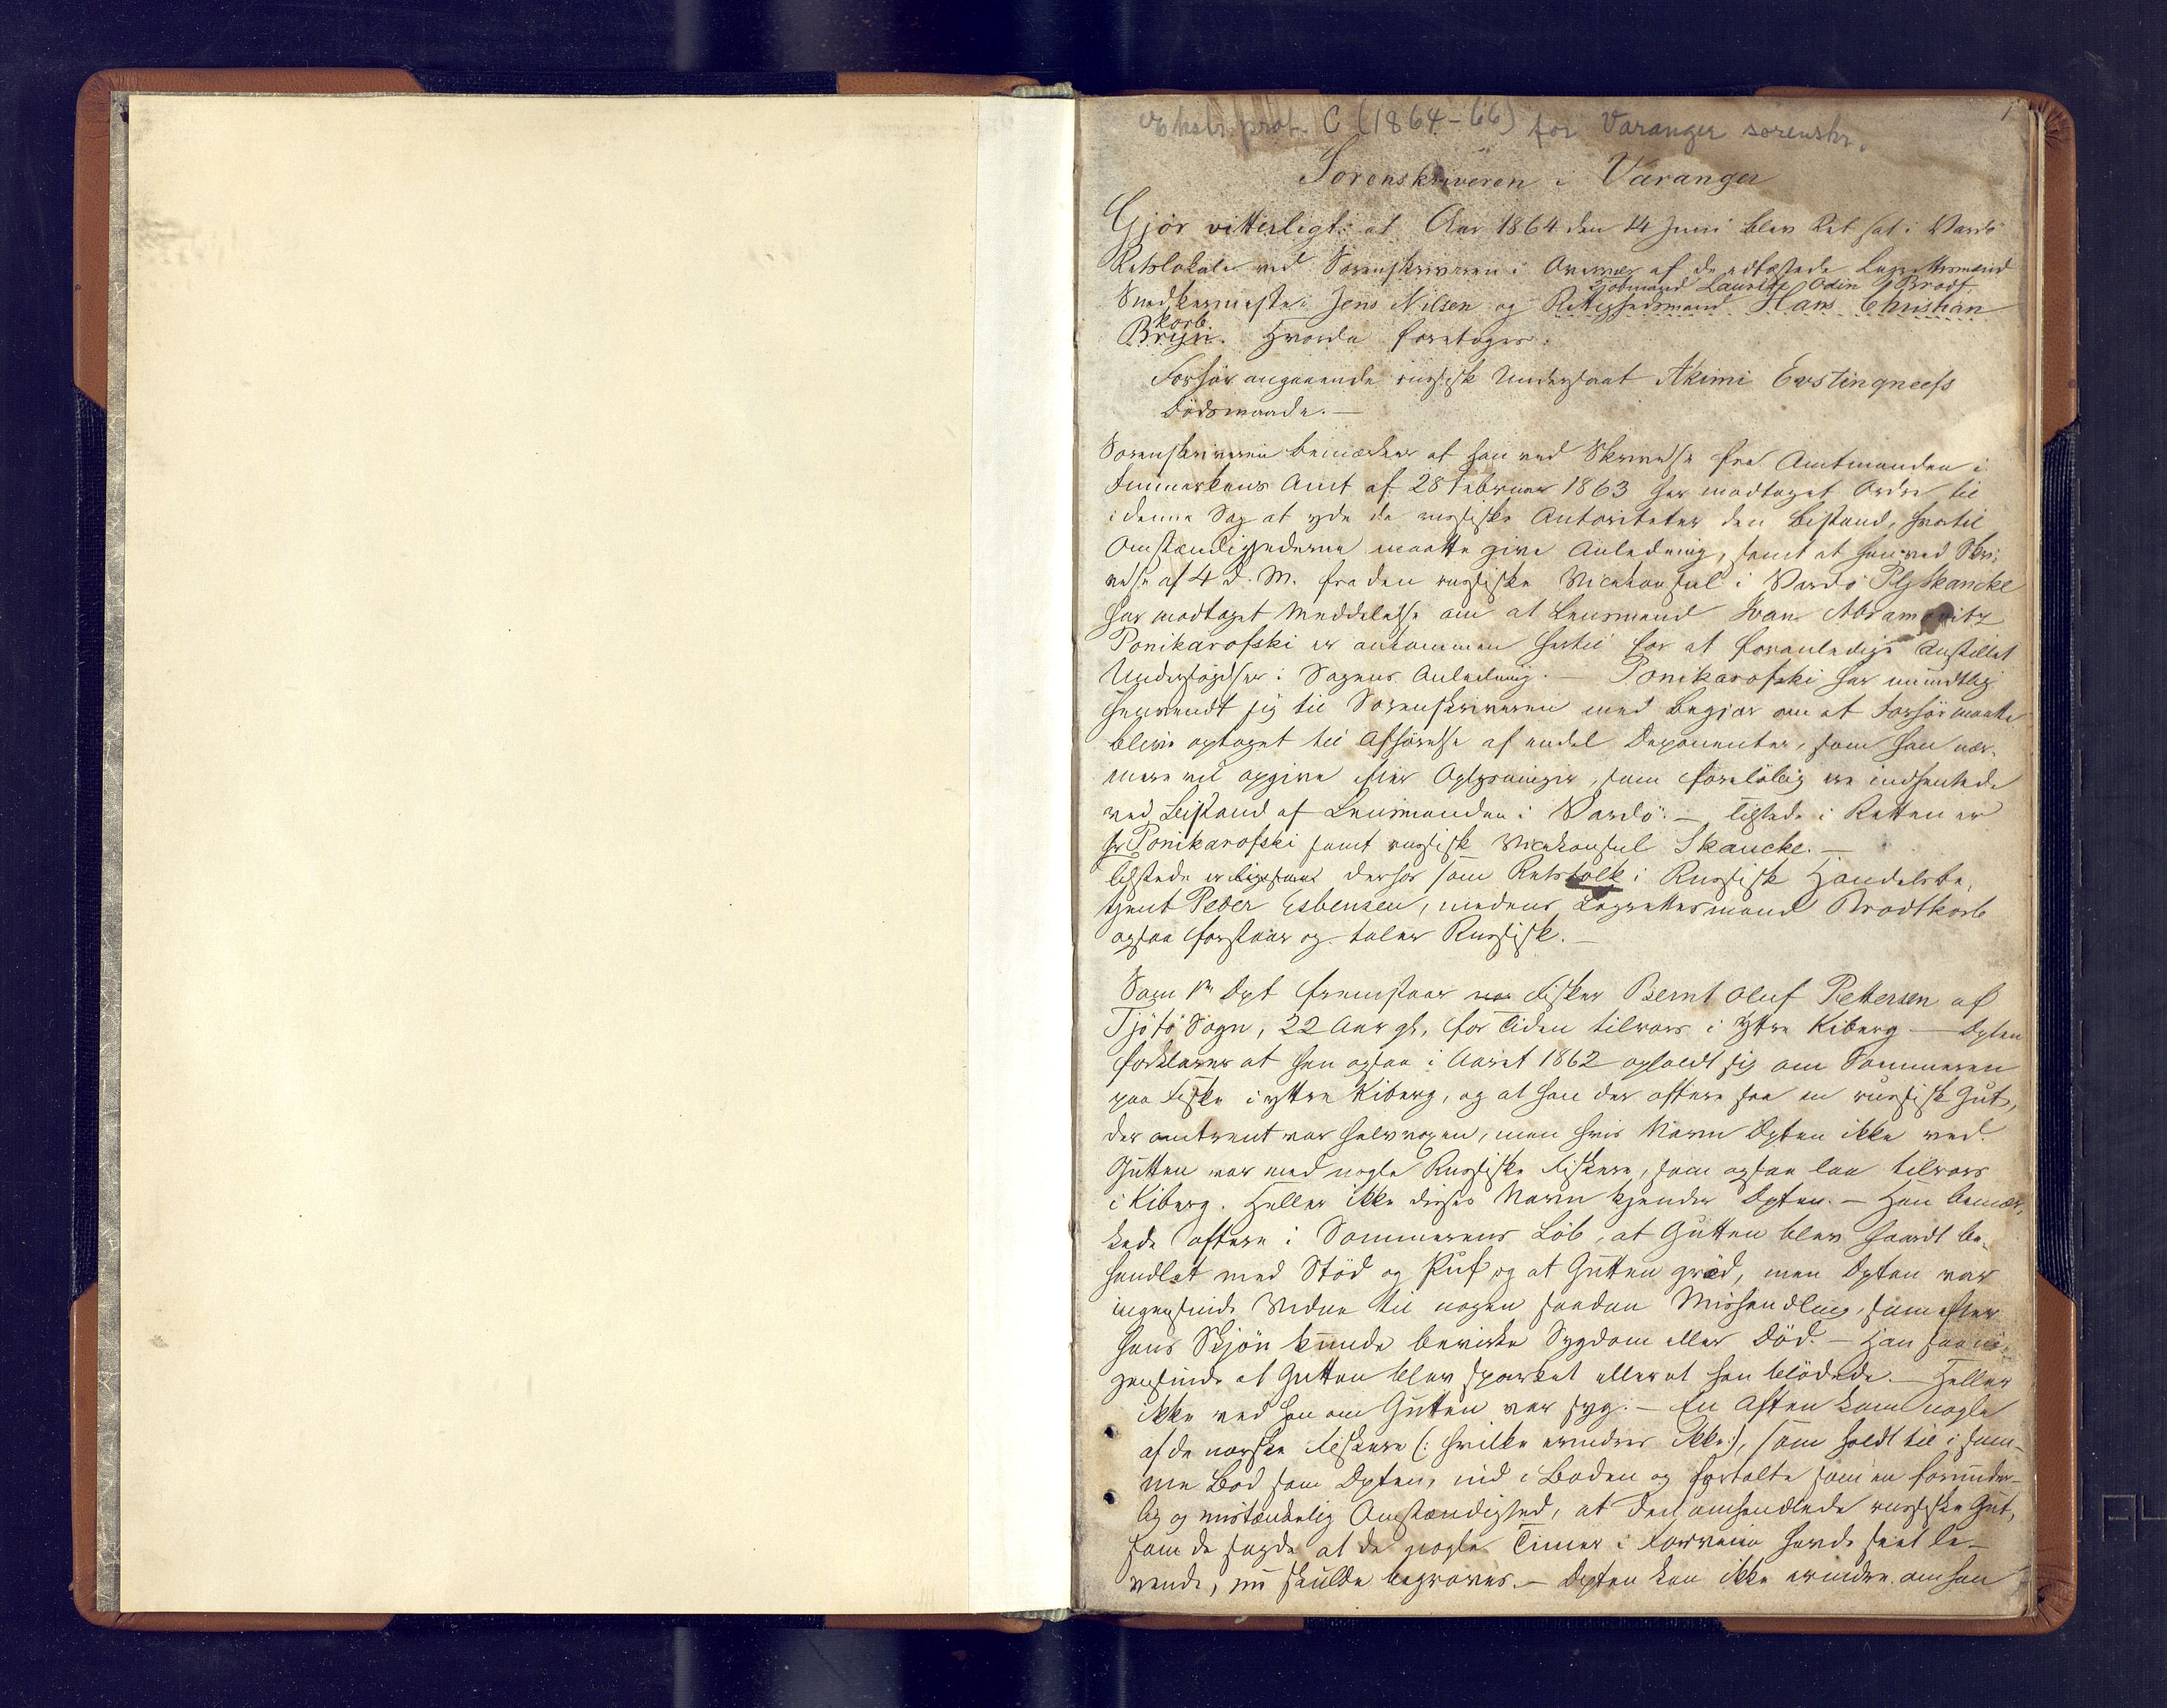 1
Ekstr. prot. C (1864-66) for Varanger sorenskr.
Sorenskriveren i Varanger
Gjör vitterligt: at Aar 1864 den 14 Juni blev Ret sat i Vardö
Retslokale ved Sorenskriveren i Overvær af de edfæstede Lagrettesmænd
Kjöbmand Lauritz Odin Brodt-
Snedkermester Jens Nilsen og Rettighedsmand Hans Christian
korb.
Bryn. Hvorda foretoges:
Forhör angaaende russisk Undersaat Akimi Evstingneefs
Dödsmaade. —
Sorenskriveren bemærker at han ved Skrivelse fra Amtmanden i
Finmarkens Amt af 28 Februar 1863 har modtaget Ordre til
i denne Sag at yde de russiske Autoriteter den Bistand, hvortil
Omstændighederne maatte give Anledning, samt at han ved Skri-
velse af 4 d. M. fra den russiske Vicekonsul i Vardö Skancke
har modtaget Meddelelse om at Lensmand Ivan Abramovitz
Ponikarofski er ankommen hertil for at foranledige anstillet
Undersögelser i Sagens Anledning. — Ponikarofski har mundtlig
henvendt sig til Sorenskriveren med Begjær om at Forhör maatte
blive optaget til Afhörelse af endel Deponenter, som han nær-
mere vil opgive efter Oplysninger, som forelöbig ere indhentede
ved Bistand af Lensmanden i Vardö. — Tilstede i Retten er
Hr Ponikarofski samt russisk Vicekonsul Skancke. —
Tilstede er ligesaa derhos som Retstolk i Russisk Handelsbe-
tjent Peder Esbensen, medens Lagrettesmand Brodtkorb
ogsaa forstaar og taler Russisk. —
Som 1ste Dpt fremstaar Fisker Bernt Oluf Pettersen af
Tjötö Sogn, 22 Aar gl, for Tiden tilrors i Ytre Kiberg — Dpten
forklarer at han ogsaa i Aaret 1862 opholdt sig om Sommeren
paa Fiske i ytre Kiberg, og at han der oftere saa en russisk Gut,
der omtrent var halvvoxen, men hvis Navn Dpten ikke ved.
Gutten var med nogle Russiske Fiskere, som ogsaa laa tilrors
i Kiberg. Heller ikke disses Navn kjender Dpten. — Han bemær-
kede oftere i Sommerens Löb, at Gutten blev haardt be-
handlet med Stöd og Puf og at Gutten græd, men Dpten var
ingensinde Vidne til nogen saadan Mishandling, som efter
hans Skjön kunde bevirke Sygdom eller Död. — Han saa in-
gensinde at Gutten blev sparket eller at han blödede. — Heller
ikke ved han om Gutten var syg. — En Aften kom nogle
af de norske Fiskere (: hvilke erindres ikke:), som holdt til i sam-
me Bod som Dpten, ind i Boden og fortalte som en forunder-
lig og mistænkelig Omstændighed, at den omhandlede russiske Gut,
som de sagde at de nogle Timer i Forveien havde seet le-
vende, nu skulde begraves. — Dpten kan ikke erindre om han